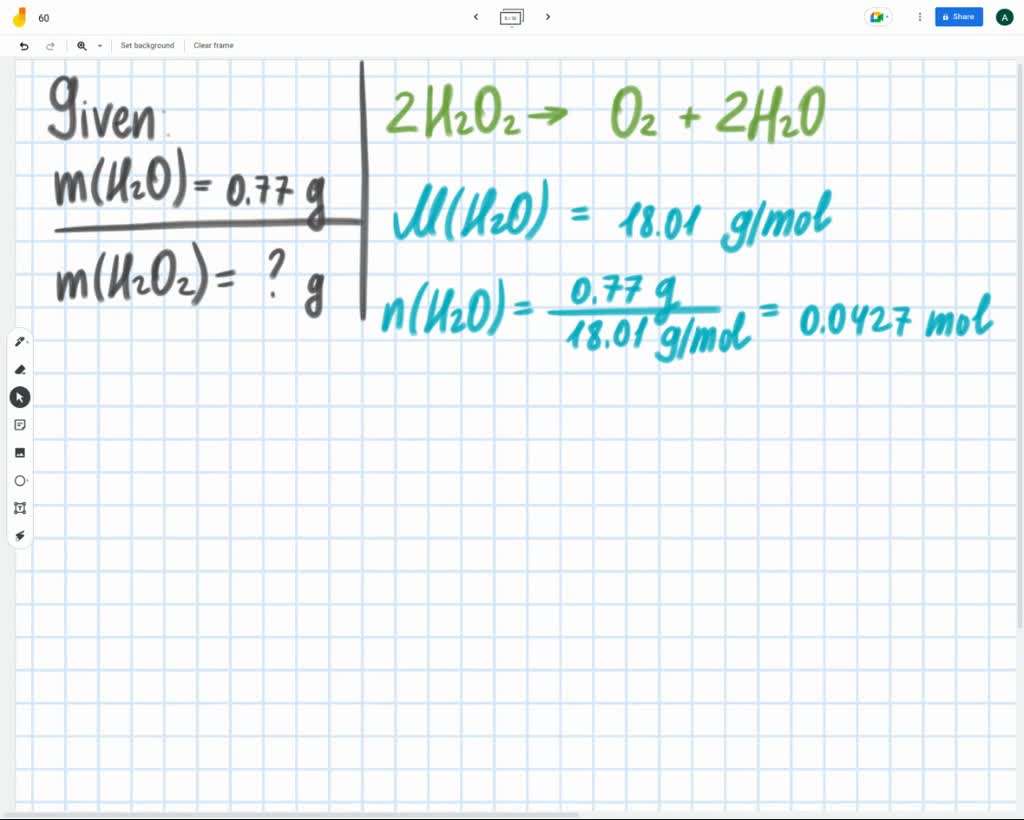 60
5 / 10
Share
A
Set background
Clear frame
Given:
m(H₂O) = 0.77 g
m(H₂O₂) = ? g
2H₂O₂ → O₂ + 2H₂O
M(H₂O) = 18.01 g/mol
n(H₂O) = 0.77 g / 18.01 g/mol = 0.0427 mol